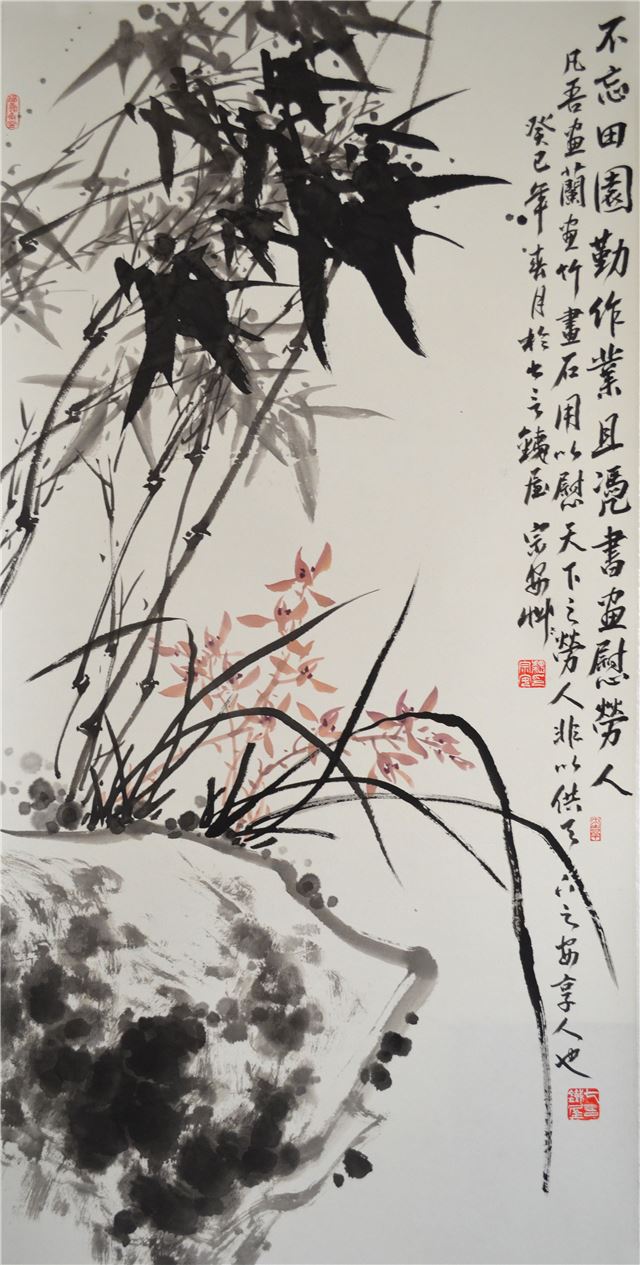 不忘田園勤作業且憑書畫慰勞人
凡吾画蘭画竹畫石用以慰天下之勞人非以供天下之安享人也
癸巳年春月於七言鐵屋宗安艸